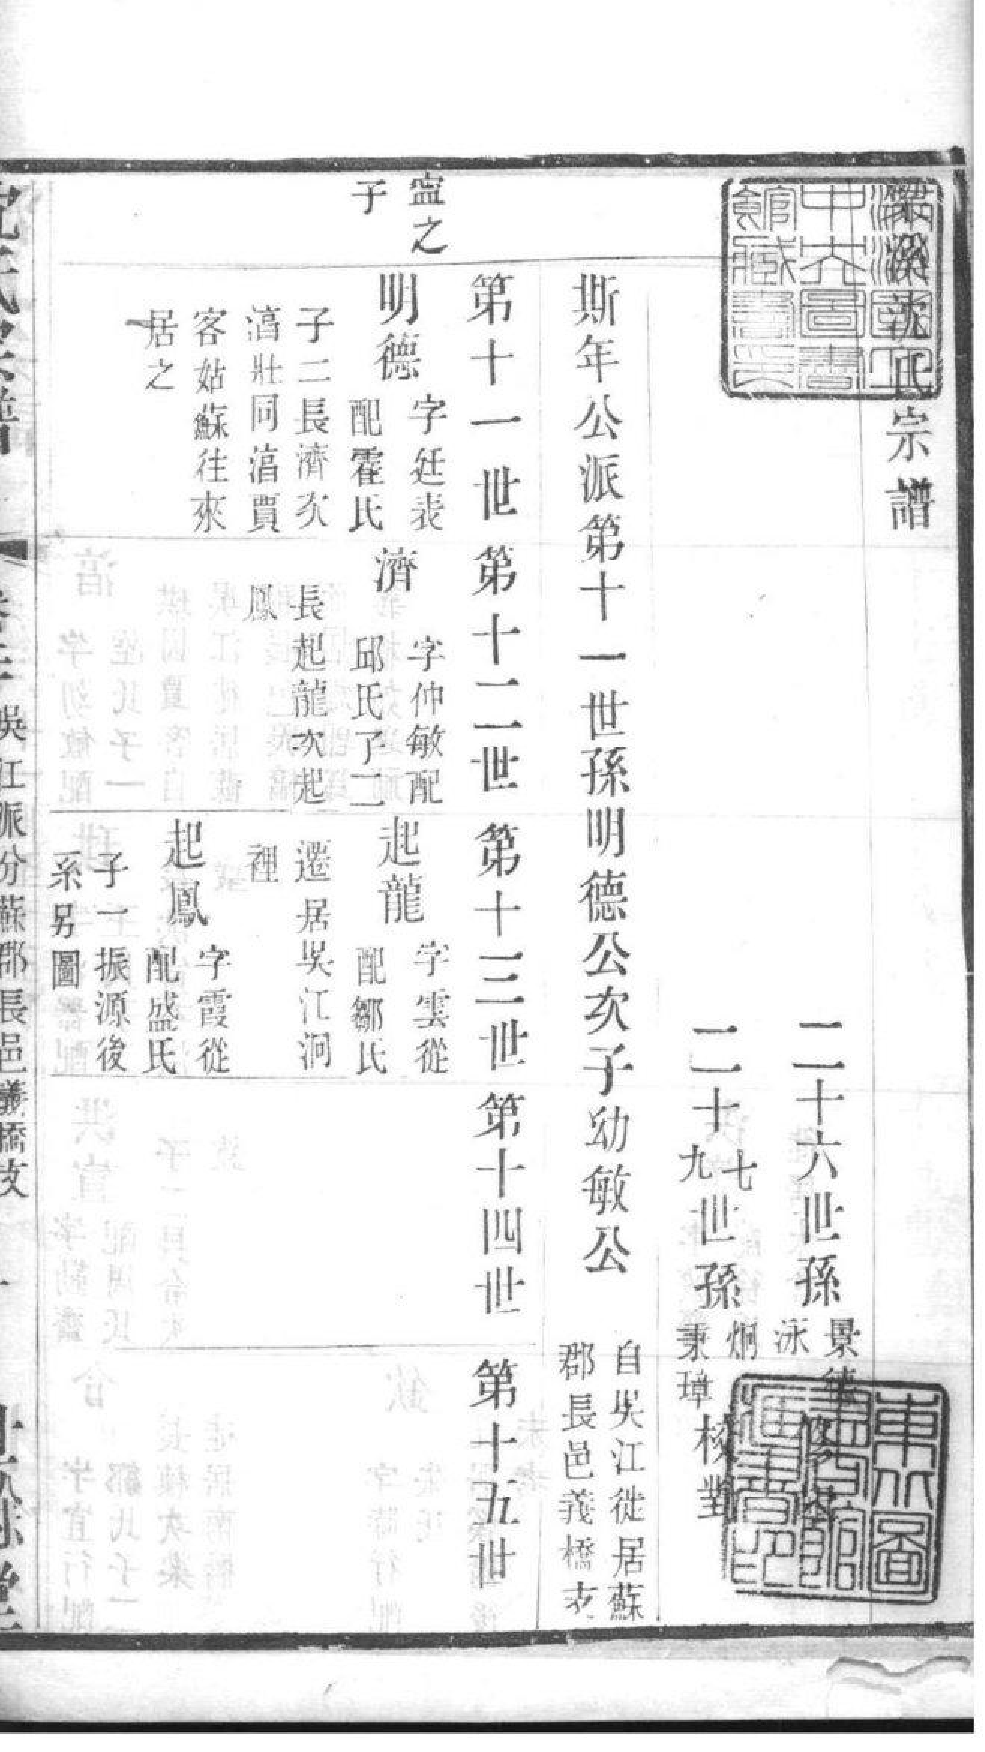 梁溪沈氏宗譜
二十六世孫
景德
泳
修
二十七九世孫
炯
秉璋
核對
斯年公派第十一世孫明德公次子幼敏公
自吳江徙居蘇
郡長邑義橋支
第十一世
第十二世
第十三世
第十四世
第十五世
寍之
子
明德
字廷表
配霍氏
子二長濟次
湻壯同湻賈
客姑蘇往來
居之
濟
字仲敏配
邱氏子二
長起龍次起
鳳
起龍
字雲從
配鄒氏
遷居吳江洞
裡
起鳳
字霞從
配盛氏
子一振源後
系另圖
沈氏宗譜
吳江派分蘇郡長邑義橋支
一